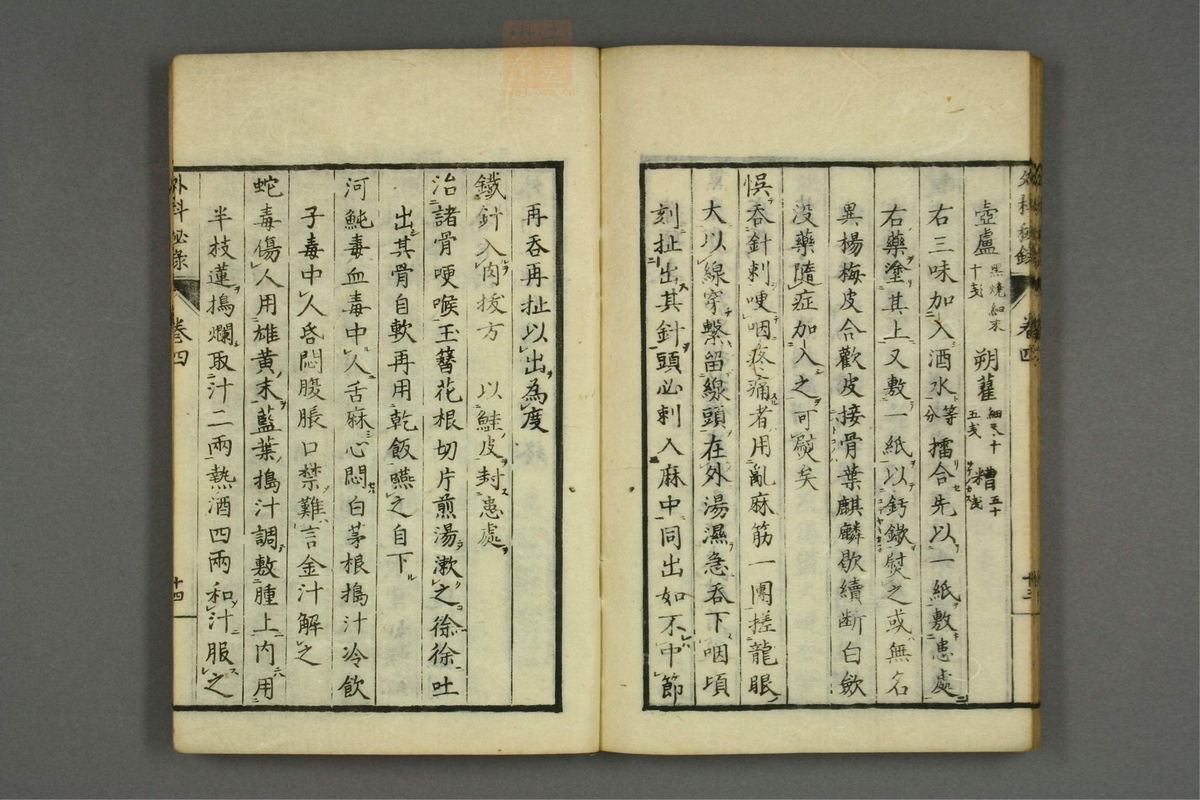 壺盧 黒燒細末十戔 朔藋 細末十五戔 糟 五十戔
右三味加入酒水等分擂合先以一紙敷患處
右藥塗其上又敷一紙以鈣鍬熨之或無名
異楊梅皮合歡皮接骨葉麒麟歇續斷白歛
没藥隨症加入之可熨矣
悞吞針刺哽咽疼痛者用亂麻筋一團搓龍眼
大以線穿繫留線頭在外湯濕急吞下咽頃
刻扯出其針頭必刺入麻中同出如不中節
外科秘錄 卷四 十三
再吞再扯以出為度
鐵針入肉拔方 以鮭皮封患處
治諸骨哽喉玉簪花根切片煎湯漱之徐徐吐
出其骨自軟再用乾飯嚥之自下
河魨毒血毒中人舌麻心悶白茅根搗汁冷飲
子毒中人昏悶腹脹口禁難言金汁解之
蛇毒傷人用雄黃末藍葉搗汁調敷腫上內用
半技蓮搗爛取汁二兩熱酒四兩和汁服之
外科秘錄 卷四 十四